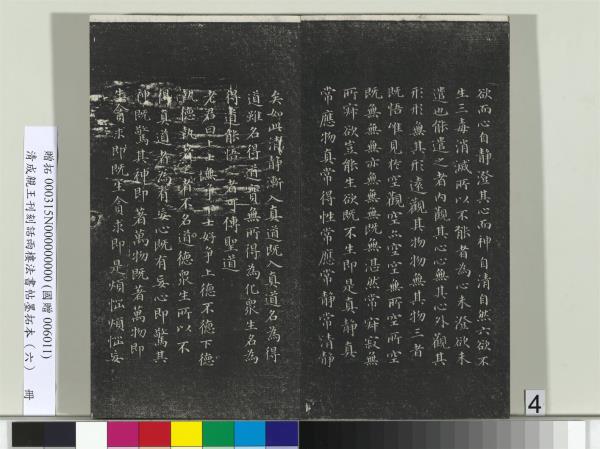 欲而心自靜澄其心而神自清自然六欲不
生三毒消滅所以不能者為心未澄欲未
遣也能遣之者內觀其心心無其心外觀其
形形無其形遠觀其物物無其物三者
既悟惟見於空觀空亦空空無所空所空
既無無無亦無無無既無湛然常寂寂無
所寂欲豈能生欲既不生即是真靜真
常應物真常得性常應常靜常清靜
矣如此清靜漸入真道既入真道名為得
道雖名得道實無所得為化眾生名為
得道能悟之者可傳聖道
老君曰上士無爭下士好爭上德不德下德
執德執著之者不名道德眾生所以不
得真道者為有妄心既有妄心即驚其
神既驚其神即著萬物既著萬物即
生貪求即既生貪求即是煩惱煩惱妄
贈拓 000315N000000000 (國贈 006011)
清成親王刊刻話雨樓法書帖墨拓本（六） 冊
4